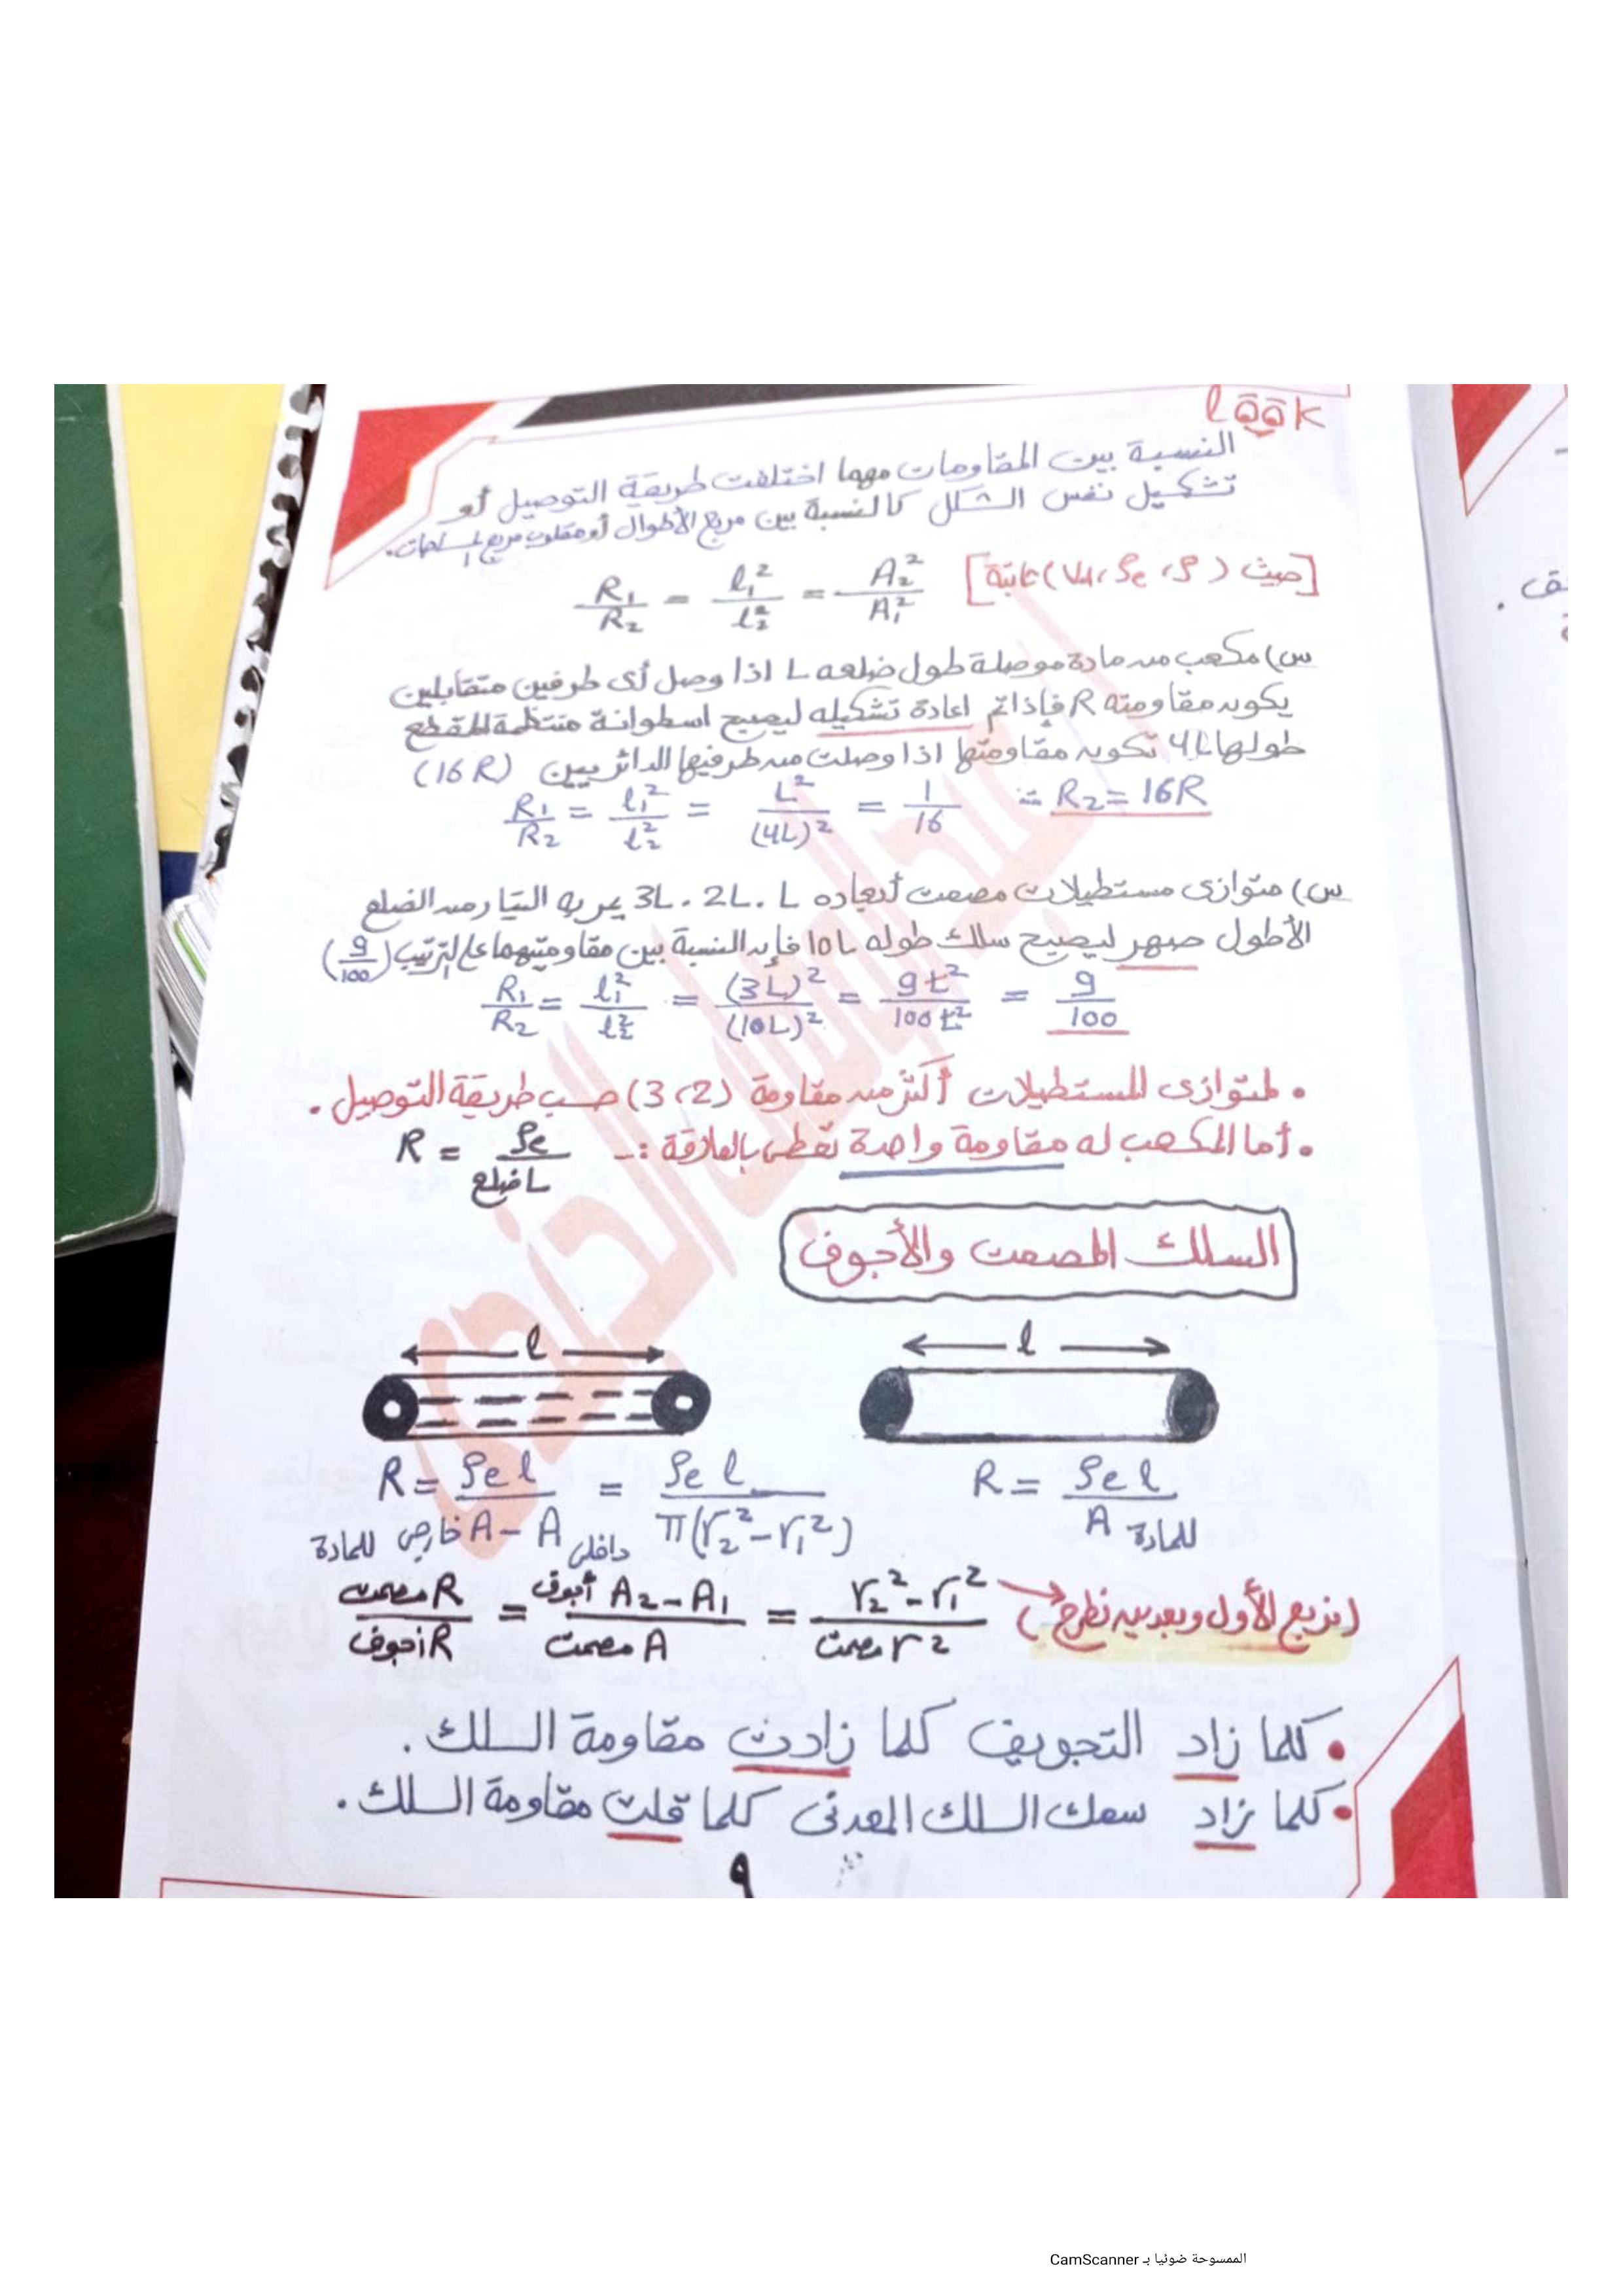 look
النسبة بين المقاومات مهما اختلفت طريقة التوصيل أو
تشكيل نفس الشكل كالنسبة بين مربع الأطوال أو مقلوب مربع المساحات.
R₁/R₂ = l₁²/l₂² = A₂²/A₁² [حيث (ρ، ρe، Vol) ثابتة]
س) مكعب من مادة موصلة طول ضلعه L اذا وصل أى طرفين متقابلين
يكون مقاومته R فإذا تم اعادة تشكيله ليصبح اسطوانة منتظمة المقطع
طولها 4L تكون مقاومتها اذا وصلت من طرفيها الدائريين (16R)
R₁/R₂ = l₁²/l₂² = L²/(4L)² = 1/16 ∴ R₂ = 16R
س) متوازى مستطيلات مصمت أبعاده L . 2L . 3L يمر به التيار من الضلع
الأطول صهر ليصبح سلك طوله 10L فإن النسبة بين مقاومتيهما على الترتيب (9/100)
R₁/R₂ = l₁²/l₂² = (3L)²/(10L)² = 9L²/100L² = 9/100
• لمتوازى المستطيلات أكثر من مقاومة (2، 3) حسب طريقة التوصيل .
• أما المكعب له مقاومة واحدة تعطى بالعلاقة :- R = ρe/L ضلع
السلك المصمت والأجوف
l
l
R = ρe l / A للمادة
R = ρe l / A خارجى - A داخلى للمادة = ρe l / π(r₂² - r₁²)
R مصمت / R أجوف = A₂ - A₁ أجوف / A مصمت = r₂² - r₁² / r² مصمت (نربع الأول وبعدين نطرح)
• كلما زاد التجويف كلما زادت مقاومة السلك .
• كلما زاد سمك السلك المعدنى كلما قلت مقاومة السلك .
٩
الممسوحة ضوئيا بـ CamScanner